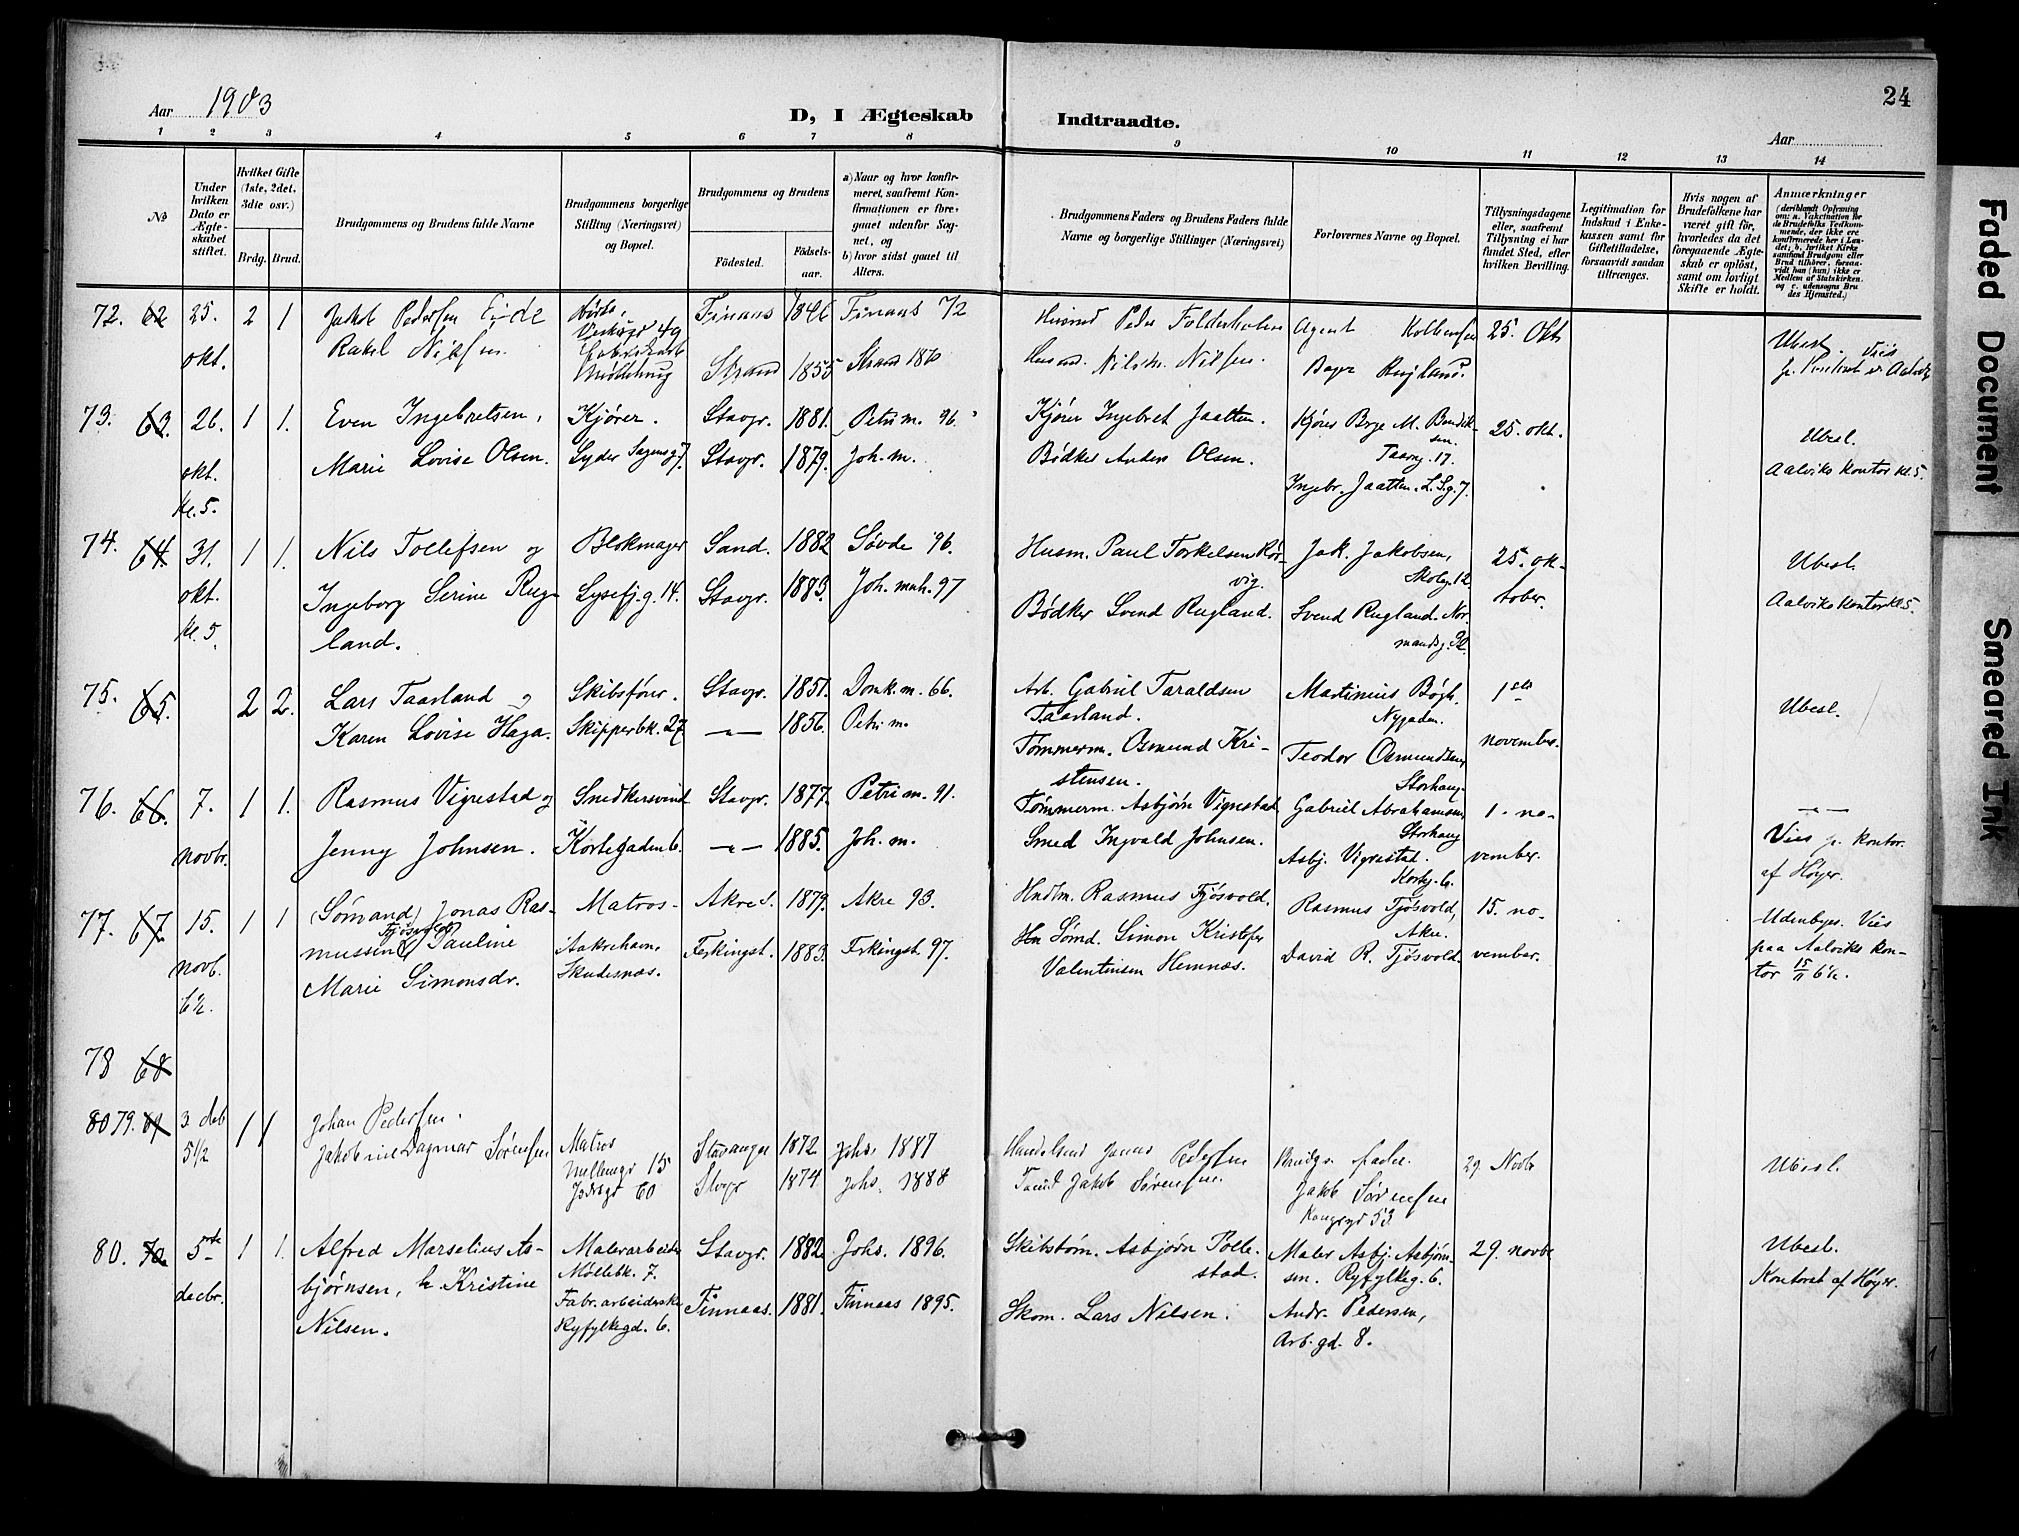 24
Aar 1903
D, I Ægteskab Indtraadte.
Aar
1 2 3 4 5 6 7 8 9 10 11 12 13 14
No
Under hvilken Dato er Ægteskabet stiftet.
Hvilket Gifte (1ste, 2det, 3die osv.)
Brdg. Brud.
Brudgommens og Brudens fulde Navne
Brudgommens borgerlige Stilling (Næringsvei) og Bopæl.
Brudgommens og Brudens
Fødested. Fødsels-aar.
a) Naar og hvor konfirmeret, saafremt Konfirmationen er foregaaet udenfor Sognet, og
b) hvor sidst gaaet til Alters.
Brudgommens Faders og Brudens Faders fulde Navne og borgerlige Stillinger (Næringsvei)
Forlovernes Navne og Bopæl.
Tillysningsdagene eller, saafremt Tillysning ei har fundet Sted, efter hvilken Bevilling.
Legitimation for Indskud i Enkekassen samt for Giftetilladelse, forsaavidt saadan tiltrænges.
Hvis nogen af Brudefolkene har været gift før, hvorledes da det foregaaende Ægteskab er opløst, samt om lovligt Skifte er holdt.
Anmærkninger
(deriblandt Oplysning om: a. Vakcination for de Brudefolks Vedkommende, der ikke ere konfirmerede her i Landet; b. hvilket Kirkesamfund Brudgom eller Brud tilhører, forsaavidt han (hun) ikke er Medlem af Statskirken, og c. udensogns Brudes Hjemsted.)
72. 62 25. okt. 2 1
Jakob Pedersen Eide
Rakel Nilsen.
Finaas 1846 Finaas 72
Strand 1855 Strand 1870
Husmd Peder Folderholm
Husmd. Nilsen.
Agent Kolbensen
25. Okt.
Ubesl.
73. 63. 26. okt. kl. 5. 1 1.
Even Ingebretsen,
Marie Lovise Olsen.
Kjører.
Lyder Sagensg. 7.
Stavgr. 1881. Petri m. 96.
Stavgr. 1879. Joh. m.
Kjører Ingebret Jaatten.
Bødker Anders Olsen.
Kjører Brge M. Bendiksen.
Taarng. 17.
Ingebr. Jaatten. L. S. g. 7.
25. okt.
Ubesl.
Aalviks kontor kl. 5.
74. 64 31. okt. kl. 5. 1 1.
Nils Tollefsen og
Ingeborg Serine Rug-
land.
Blikmager
Lysefj. g. 14.
Sand. 1882 Søvde 96.
Stavgr. 1883. Joh. mnh. 97
Husm. Paul Torkelsen Rør-
vig.
Bødker Svend Rugland.
Jak. Jakobsen,
Skoleg. 12
Svend Rugland. Nor-
mandsg. 32.
25. ok-
tober.
Ubesl.
Aalviks kontor kl 5.
75. 65. 2 2.
Lars Taarland og
Karen Lovise Haga.
Skibsfører.
Skipperbk. 27
Stavgr. 1851. Domk. m. 66.
-"- 1856. Petri m.
Arb. Gabriel Taraldsen
Taarland.
Tømmerm. Osmund Kri-
stensen.
Martinius Bøgh.
Nygaden.
Teodor Osmundsen,
Storhaug.
1ste
november.
Ubesl.
76. 66. 7. novbr. 1 1.
Rasmus Vigrestad og
Jenny Johnsen.
Snedkersvend
Kortegaden 6.
Stavgr. 1877. Petri m. 91.
-"- 1885. Joh. m.
Tømmerm. Asbjørn Vigrestad.
Smed Ingvald Johnsen.
Gabriel Abrahamsen,
Storhaug
Asbj. Vigrestad.
Korteg. 6.
1. no-
vember.
-"-
Vies p. kontor.
af Høyer.
77. 67. 15. novb. 6½. 1 1
(Sømand) Jonas Ras-
mussen Tjøsvold & Pauline
Marie Simonsdr.
Matros-
Aakrehavn,
Skudesnæs.
Akre s. 1879. Akre 93.
Ferkingst. 1883. Ferkingst. 97.
Hndlm. Rasmus Tjøsvold.
Hn Sømd. Simon Kristofer
Valentinsen Hemnæs.
Rasmus Tjøsvold,
Akre.
David R. Tjøsvold.
15. no-
vember.
Udenbyes. Vies
paa Aalviks kon-
tor 15/11 6½.
78 68
80 79. 69 3 deb 5 1/2 1 1
Johan Pedersen.
Jakobine Dagmar Sørensen
Matros
Møllengt 15
60
Stavanger 1872 Johs. 1887
Stvgr 1874 Johs. 1888
Handelsmd Jonas Pedersen
Jakob Sørensen.
Brudgs. fader.
Jakob Sørensen
Kongsgd 53.
29. Novb
Ubesl.
80. 70. 5te decbr. 1 1.
Alfred Marselius As-
bjørnsen, & Kristine
Nilsen.
Malerarbeider
Møllebk. 7.
Fabr. arbeiderske
Ryfylkegd. 6.
Stavgr. 1882. Johs. 1896.
Finnaas. 1881. Finnaas 1895.
Skibstøm. Asbjørn Tolle-
stad.
Skom. Lars Nilsen.
Maler Asbj. Asbjørn-
sen. Ryfylkeg. 6.
Andr. Pedersen,
Arb. gd. 8.
29. novbr.
Ubesl.
Kontoret af Høyer.
Faded Document
Smeared Ink